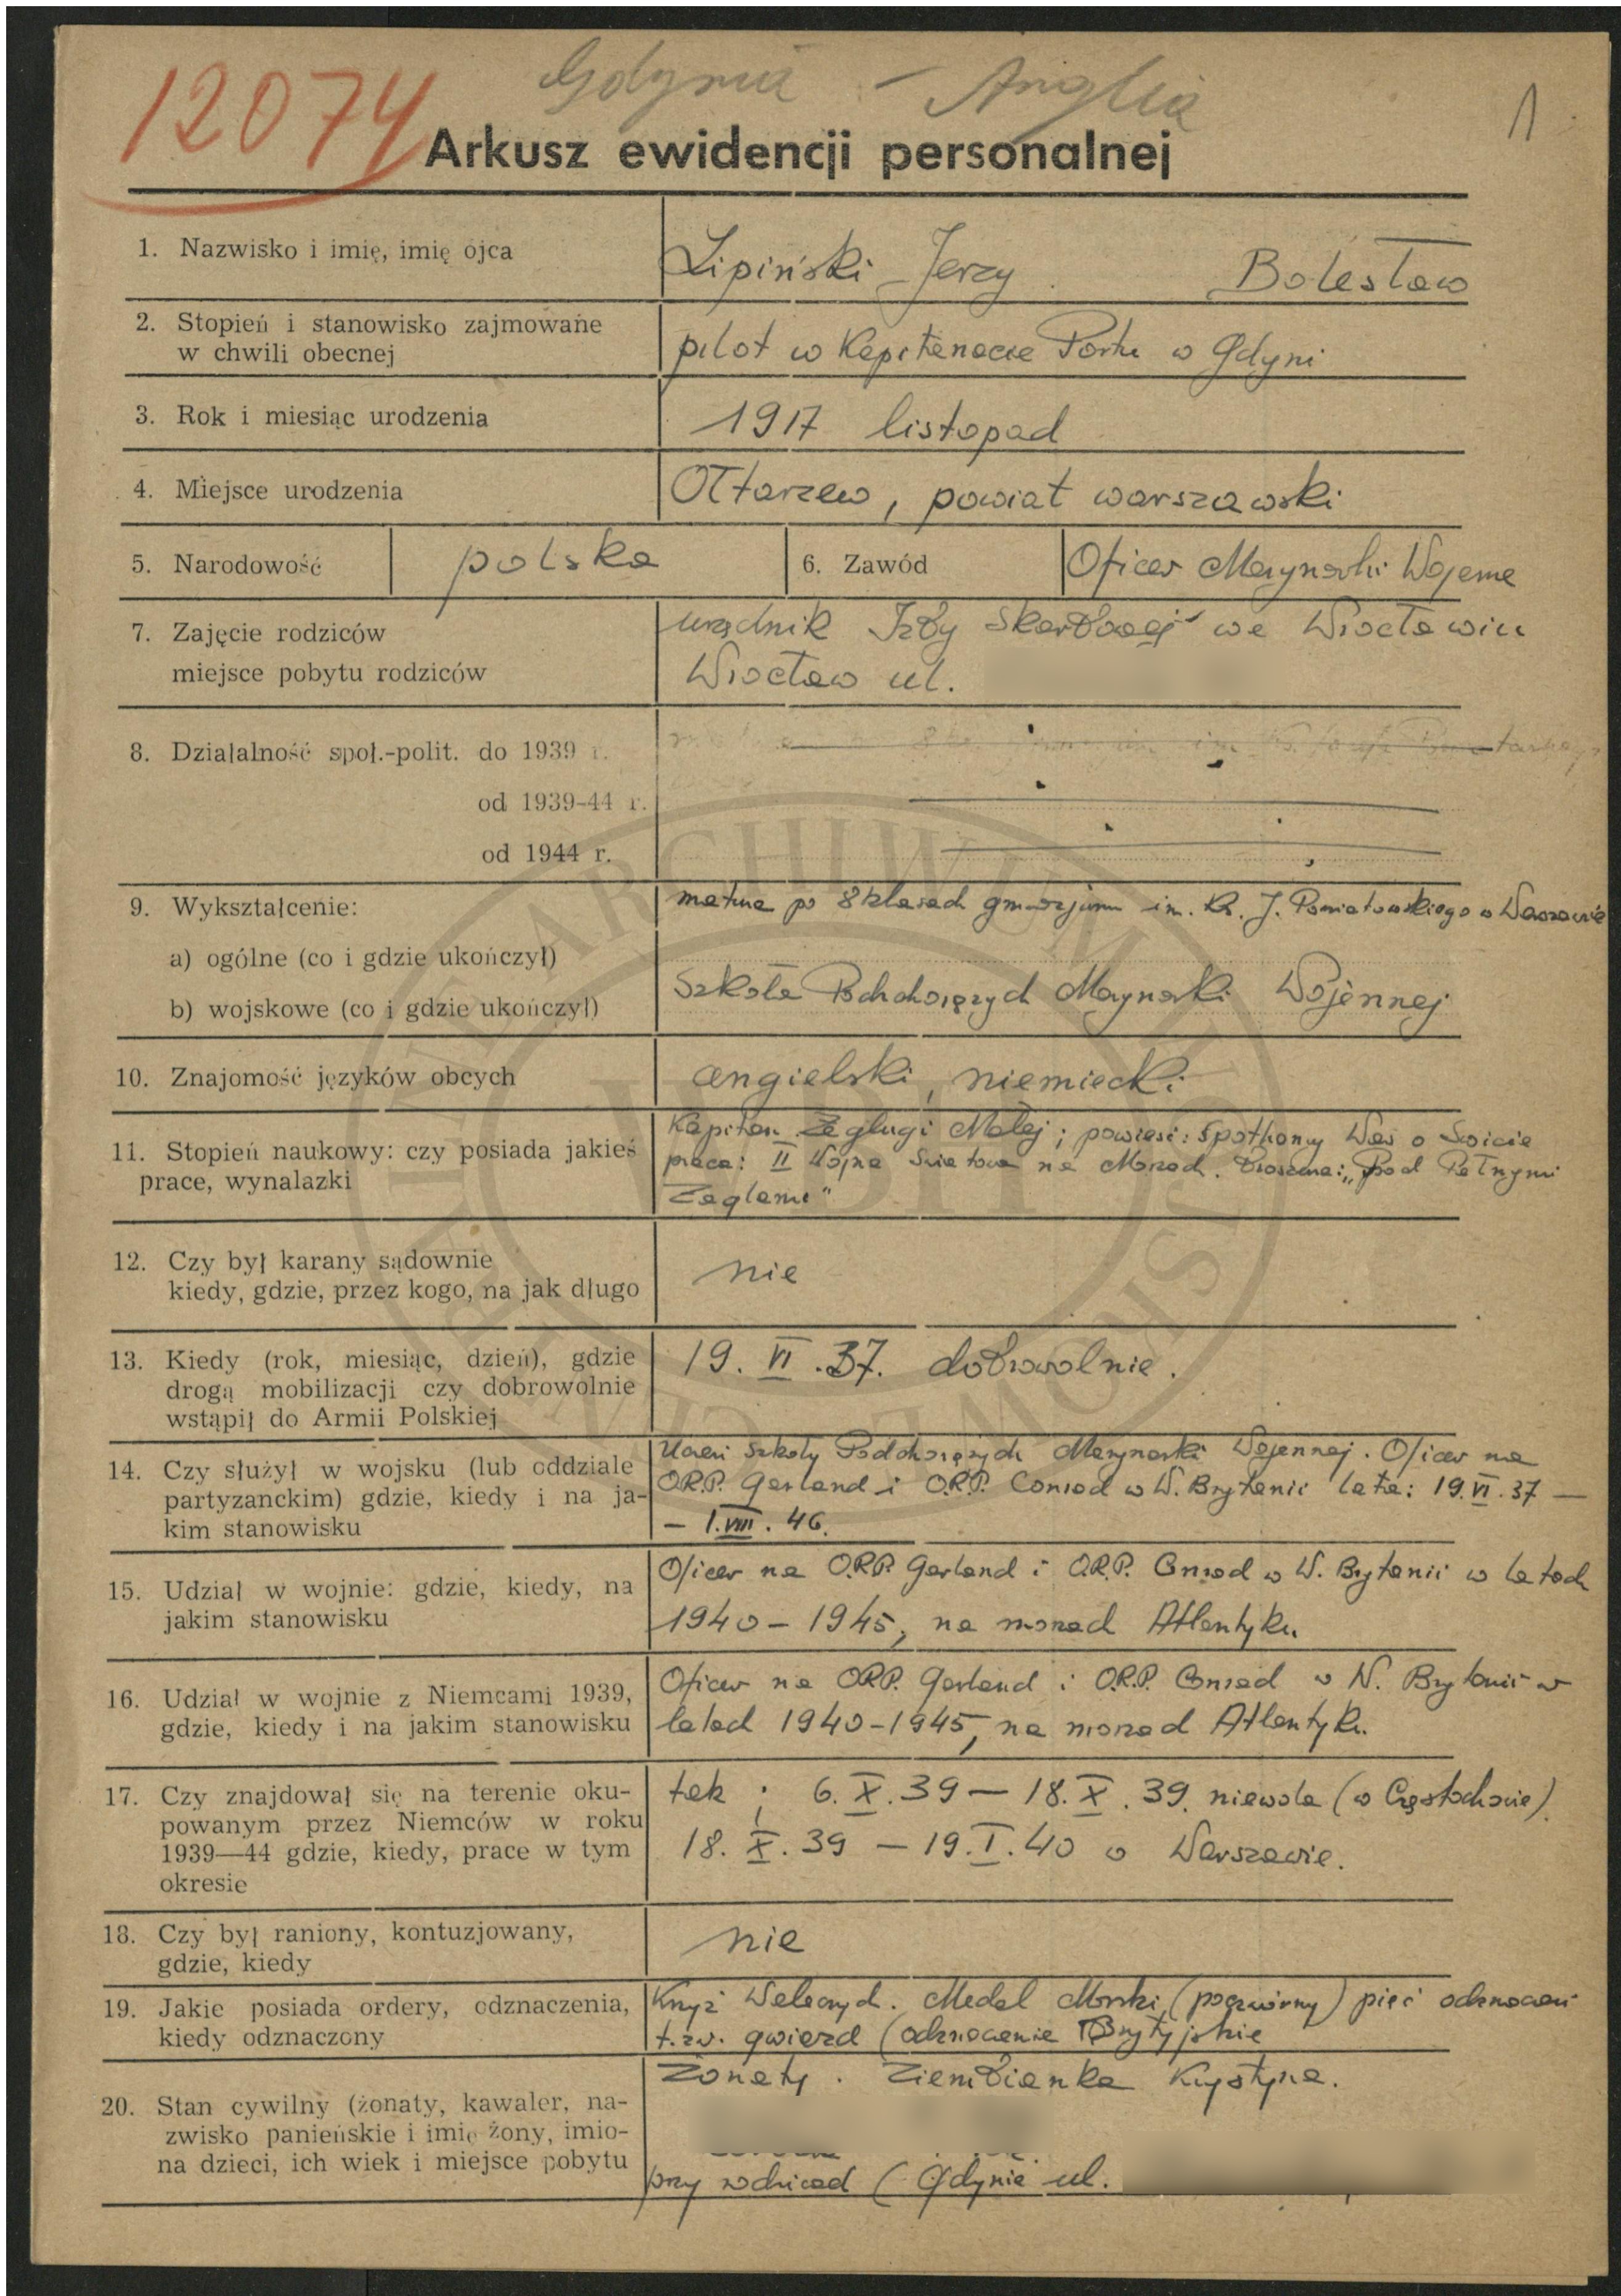 12074
Gdynia - Anglia
1
Arkusz ewidencji personalnej
1. Nazwisko i imię, imię ojca
Lipiński Jerzy Bolesław
2. Stopień i stanowisko zajmowane
w chwili obecnej
pilot w Kapitanacie Portu w Gdyni
3. Rok i miesiąc urodzenia
1917 listopad
4. Miejsce urodzenia
Ołtarzew, powiat warszawski
5. Narodowość
polska
6. Zawód
Oficer Marynarki Wojenne
7. Zajęcie rodziców
miejsce pobytu rodziców
urzędnik Izby Skarbowej we Wrocławiu
Wrocław ul.
8. Działalność społ.-polit. do 1939 r.
od 1939-44 r.
od 1944 r.
9. Wykształcenie:
a) ogólne (co i gdzie ukończył)
b) wojskowe (co i gdzie ukończył)
matura po 8 klasach gimnazjum im. Ks. J. Poniatowskiego w Warszawie
Szkoła Podchorążych Marynarki Wojennej
10. Znajomość języków obcych
angielski, niemiecki
11. Stopień naukowy: czy posiada jakieś
prace, wynalazki
Kapitan Żeglugi Małej; powieść: Spotkamy Was o Świcie
praca: II Wojna Światowa na Morzach. Broszura: "Pod Pełnymi
Żaglami"
12. Czy był karany sądownie
kiedy, gdzie, przez kogo, na jak długo
nie
13. Kiedy (rok, miesiąc, dzień), gdzie
drogą mobilizacji czy dobrowolnie
wstąpił do Armii Polskiej
19. VI. 37. dobrowolnie.
14. Czy służył w wojsku (lub oddziale
partyzanckim) gdzie, kiedy i na ja-
kim stanowisku
Uczeń Szkoły Podchorążych Marynarki Wojennej. Oficer na
O.R.P. Garland i O.R.P. Conrad w W. Brytanii lata: 19. VI. 37 —
— 1. VIII. 46.
15. Udział w wojnie: gdzie, kiedy, na
jakim stanowisku
Oficer na O.R.P. Garland i O.R.P. Conrad w W. Brytanii w latach
1940 - 1945, na morzach Atlantyku.
16. Udział w wojnie z Niemcami 1939,
gdzie, kiedy i na jakim stanowisku
Oficer na O.R.P. Garland i O.R.P. Conrad w W. Brytanii w
latach 1940-1945, na morzach Atlantyku.
17. Czy znajdował się na terenie oku-
powanym przez Niemców w roku
1939—44 gdzie, kiedy, prace w tym
okresie
tak; 6. X. 39 — 18. X. 39. niewola (w Częstochowie).
18. X. 39 — 19. I. 40 w Warszawie.
18. Czy był raniony, kontuzjowany,
gdzie, kiedy
nie
19. Jakie posiada ordery, odznaczenia,
kiedy odznaczony
Krzyż Walecznych. Medal Morski (poczwórny) pięć odznaczeń
t.zw. gwiazd (odznaczenie Brytyjskie
20. Stan cywilny (żonaty, kawaler, na-
zwisko panieńskie i imię żony, imio-
na dzieci, ich wiek i miejsce pobytu
Żonaty. Ziembianka Krystyna.
przy rodzicach (Gdynia ul.